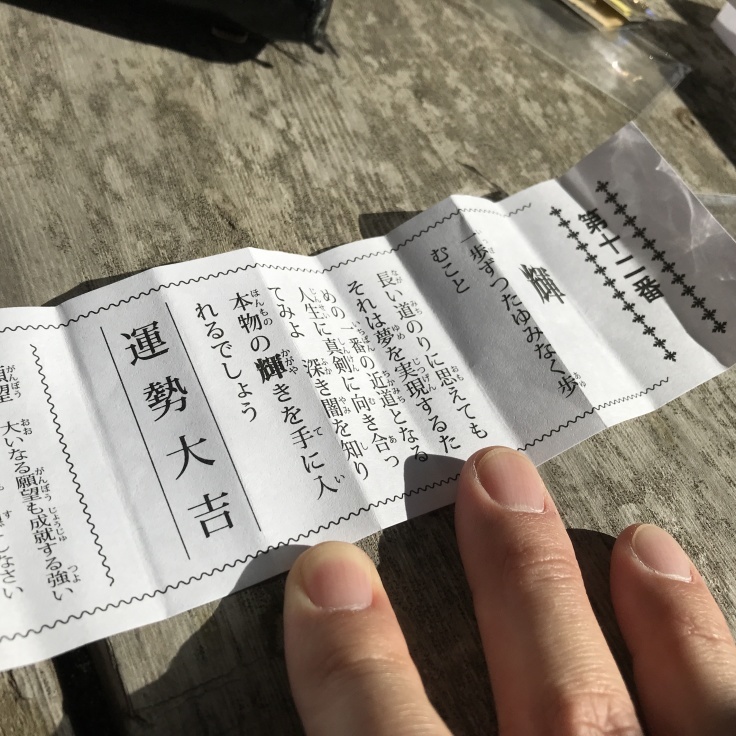 第十二番
輝
一歩ずつたゆみなく歩
むこと
長い道のりに思えても
それは夢を実現するた
めの一番の近道となる
人生に真剣に向き合っ
てみよ　深き闇を知り
本物の輝きを手に入
れるでしょう
運勢大吉
願望　大いなる願望も成就する強い
しなさい